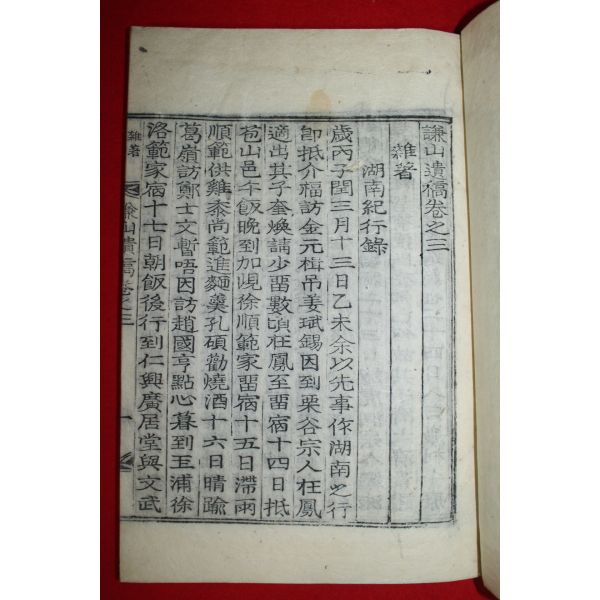 謙山遺稿卷之三
雜著
湖南紀行錄
歲丙子閏三月十三日乙未余以先事作湖南之行
卽抵介福訪金元楫吊姜珷錫因到栗谷宗人在鳳
適出其子奎煥請少留數頃在鳳至留宿十四日抵
苞山邑午飯晚到加峴徐順範家留宿十五日滯雨
順範供雞黍尚範進麵羹孔碩勸燒酒十六日晴踰
葛嶺訪鄭士文暫唔因訪趙國亨點心暮到玉浦徐
洛範家宿十七日朝飯後行到仁興廣居堂與文武
雜著
謙山遺稿卷之三
一